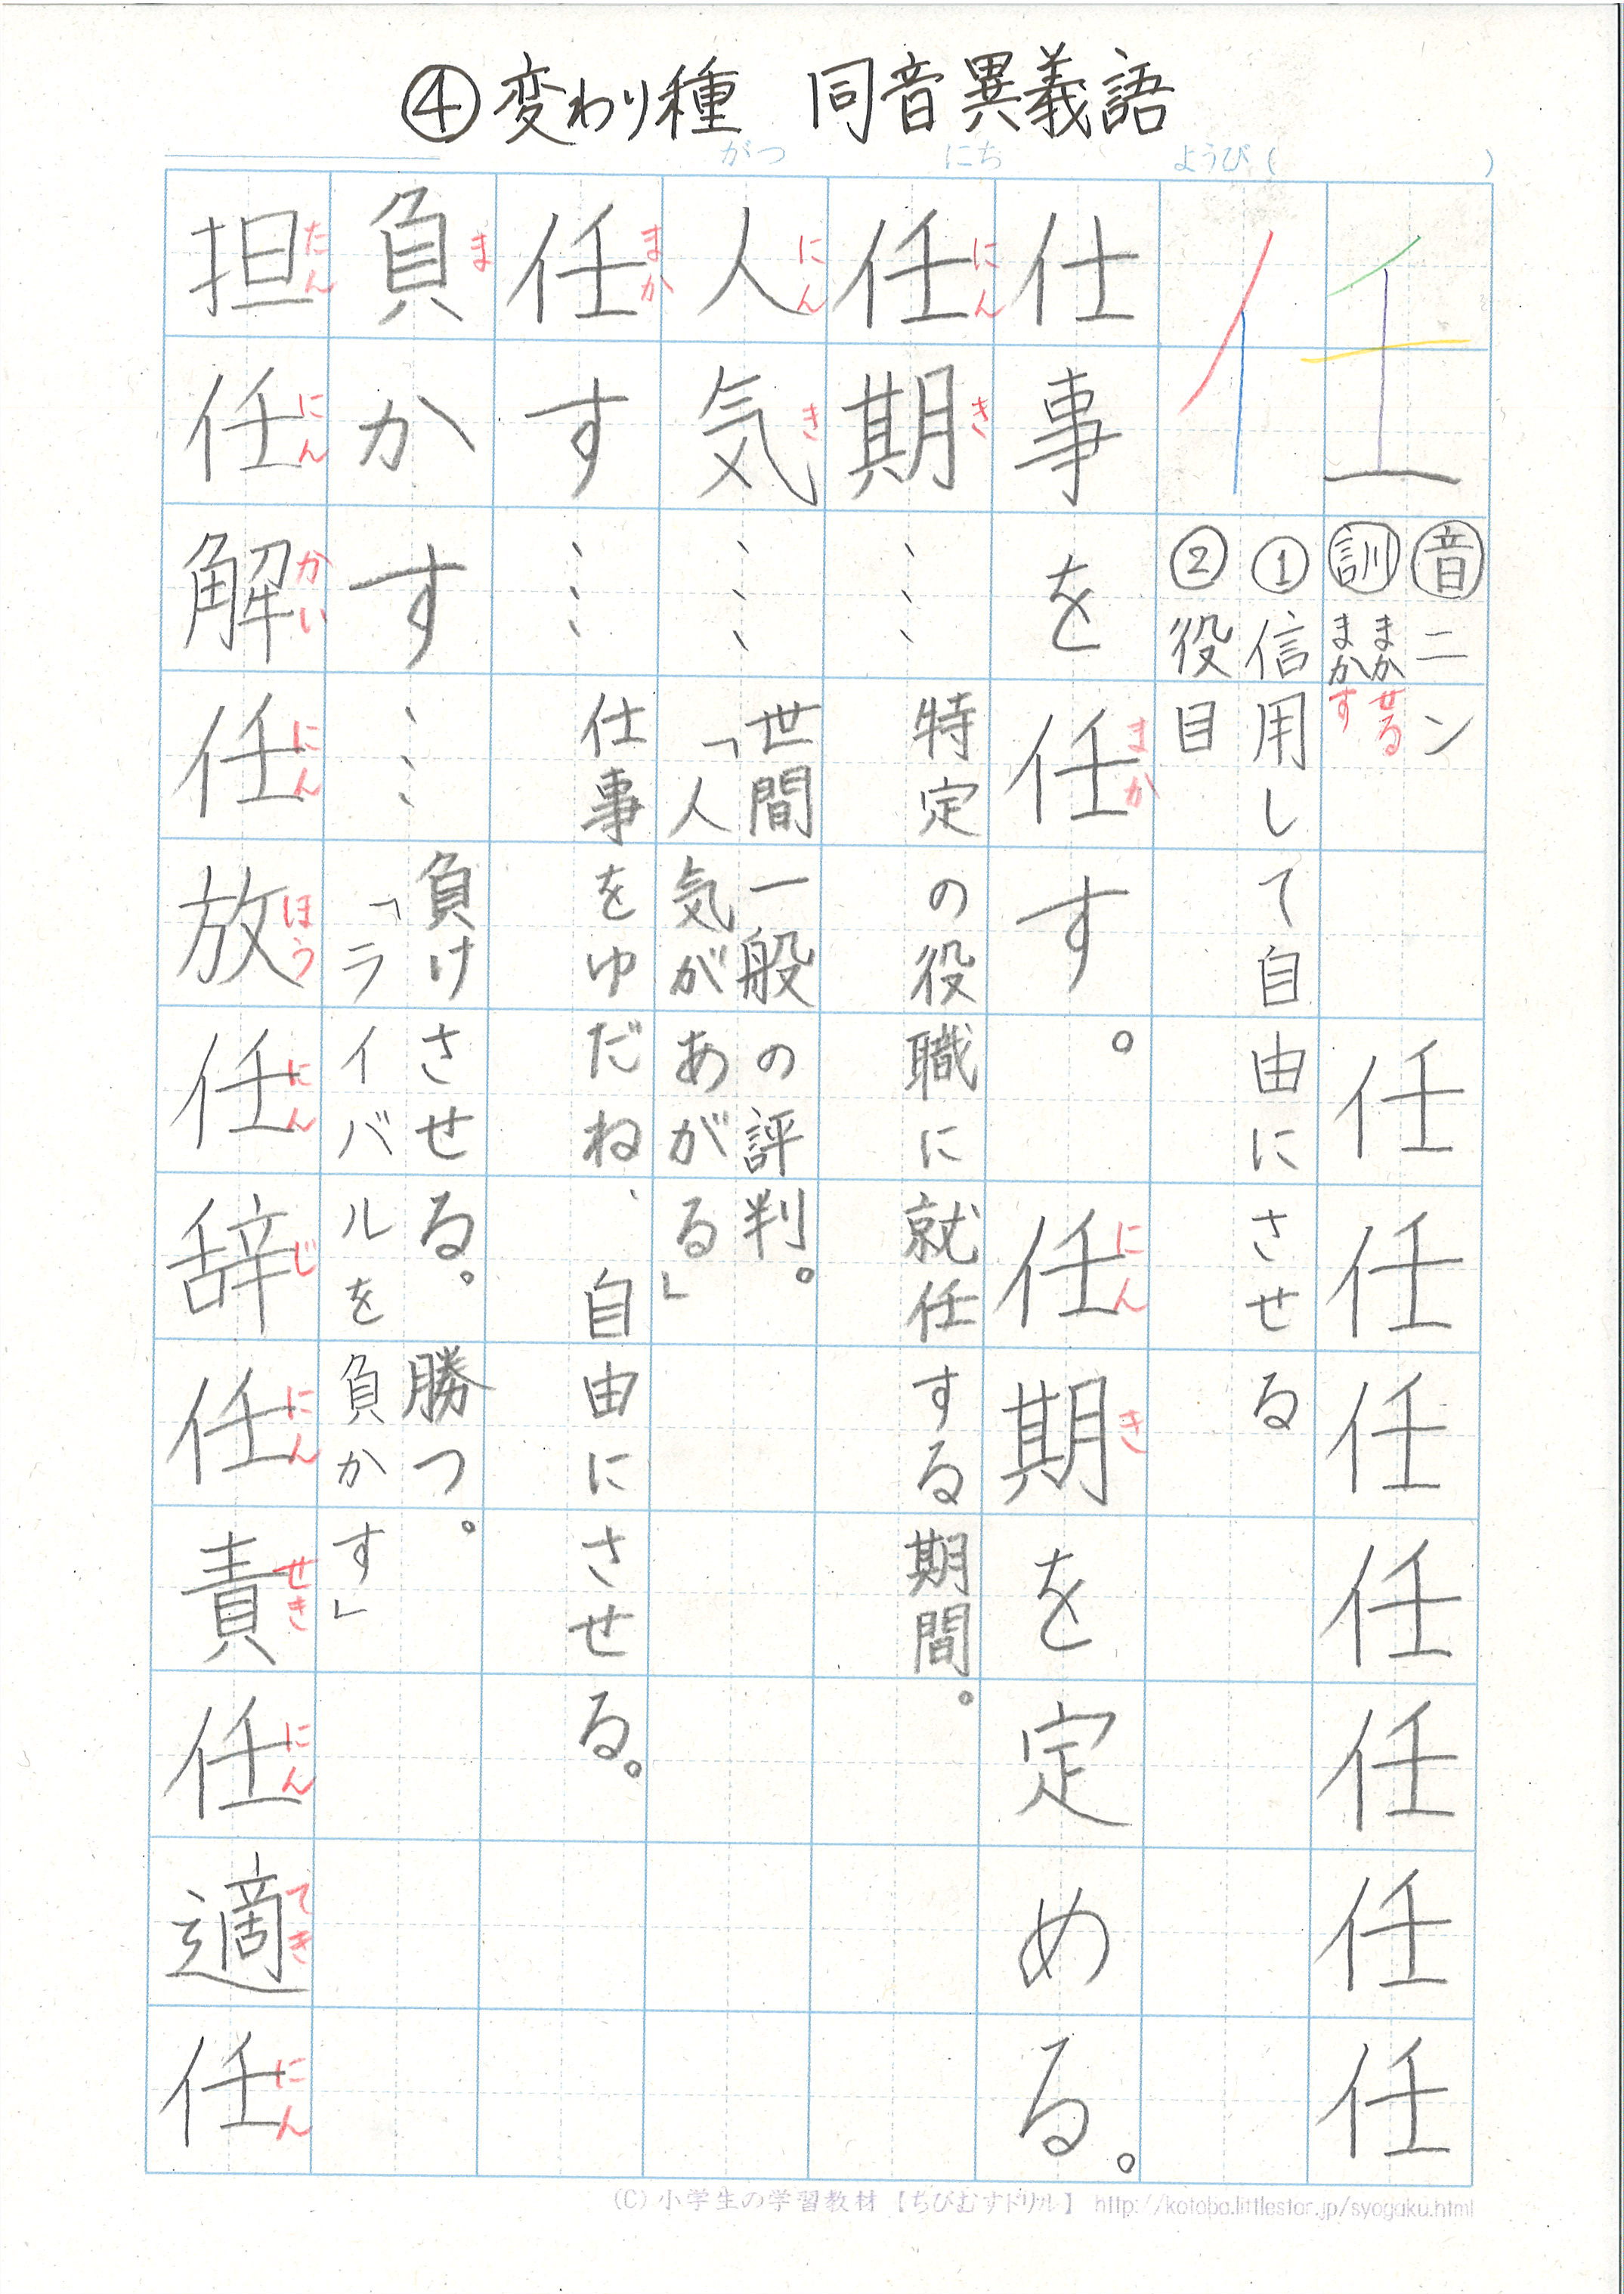 ④変わり種 同音異義語
がつ にち ようび( )
任
音 ニン
訓 まかせる
まかす
任任任任任任任
①信用して自由にさせる
②役目
仕事を任す。 任期を定める。
まか にんき
任期……特定の役職に就任する期間。
にんき
人気……世間一般の評判。
「人気があがる」
にんき
任す……仕事をゆだね、自由にさせる。
まか
負かす……負けさせる。勝つ。
「ライバルを負かす」
ま
担任解任放任辞任責任適任
たんにんかいにんほうにんじにんせきにんてきにん
(C) 小学生の学習教材【ちびむすドリル】 http://kotoba.littlestar.jp/syogaku.html